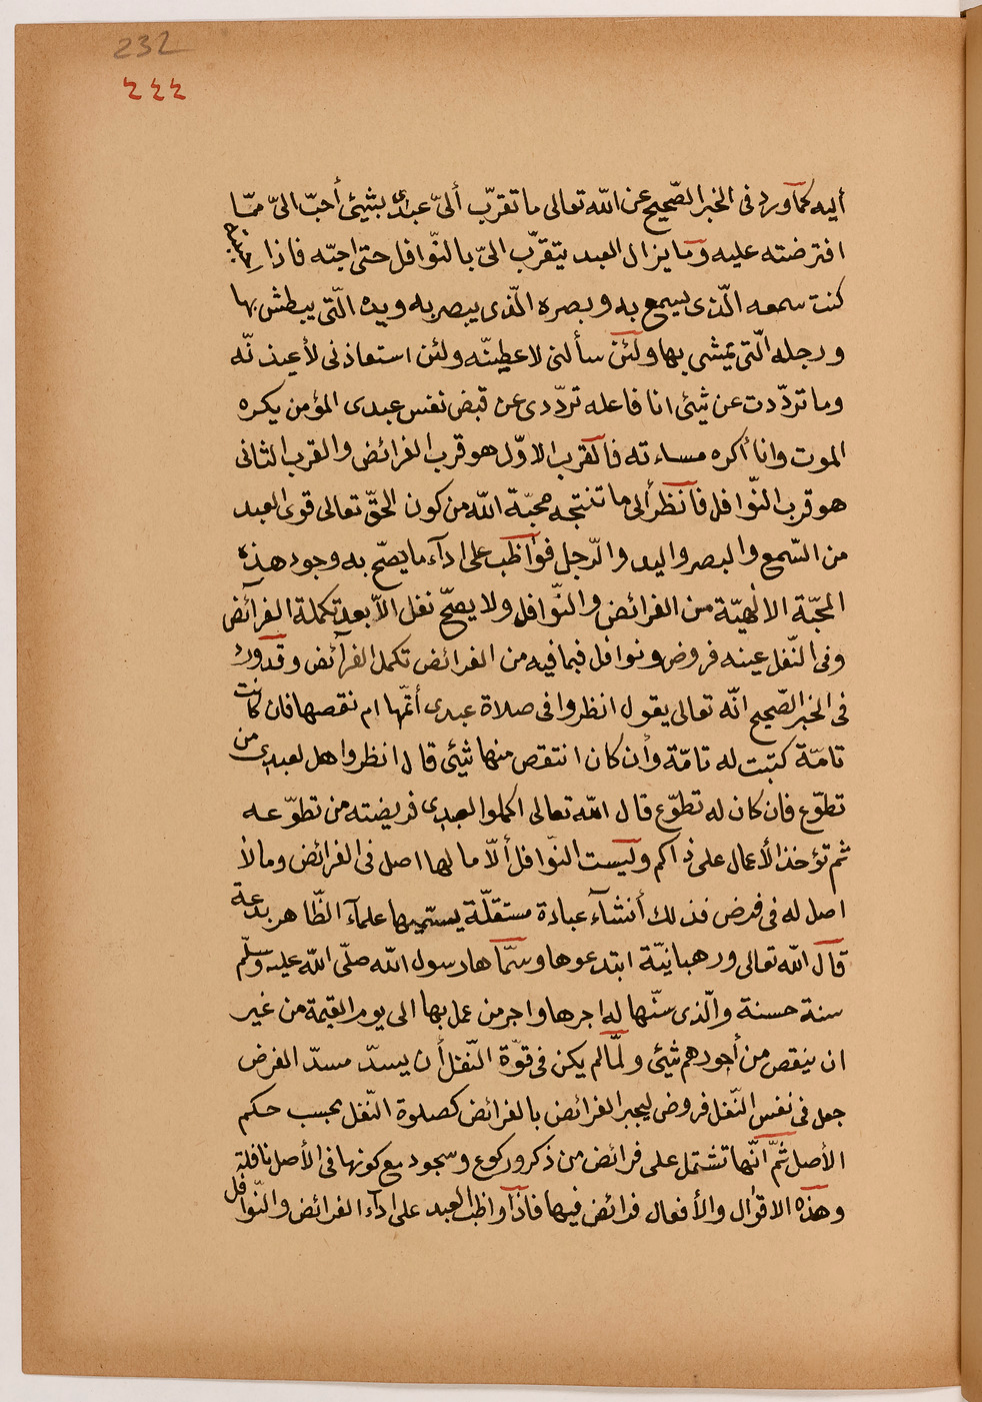 232
٤٤٤
أليه كمآورد فى الخبر الصّحيح عن اللّه تعالى ما تقرّب ألىّ عبدىٌ بشيئ أحبّ الىّ ممّا
افترضته عليه وما يزال العبد يتقرّب الىّ بالنّوافل حتى احبّه فاذا احببته
كنت سمعه الّذى يسمع به وبصره الّذى يبصر به ويده الّتى يبطش بها
ورجله الّتى يمشى بها ولئن سألنى لاعطينّه ولئن استعاذنى لأعيذنّه
وما تردّدت عن شيئ انا فاعله تردّدى عن قبض نفس عبدى المؤمن يكره
الموت وانا أكره مساءته فالقرب الاوّل هو قرب الفرائض والقرب الثانى
هو قرب النّوافل فآنظر ألى ما تنتجه محبّة اللّه من كون الحقّ تعالى قوى العبد
من السّمع والبصر واليد والرّجل فواظب على ادآء ما يصحّ به وجود هذه
المحبّة الالٰهيّة من الفرائض والنّوافل ولا يصحّ نفل الاّ بعد تكملة الفرآئض
وفى النّفل عينه فروض ونوافل فبما فيه من الفرائض تكمل الفرآئض وقد ورد
فى الخبر الصّحيح انّه تعالى يقول انظروا فى صلاة عبدى أتمّها ام نقصها فان كانت
تامّة كتبت له تامّة وأن كان انتقص منها شيئ قال انظروا هل لعبدى من
تطوّع فان كان له تطوّع قال اللّه تعالى اكملوا لعبدى فريضته من تطوّعه
ثم تؤخذ الأعمال على ذاكم وليست النّوافل ألاّ ما لها اصل فى الفرائض وما لا
اصل له فى فرض فذلك أنشآء عبادة مستقلّة يسمّيها علمآء الظّاهر بدعة
قال اللّه تعالى ورهبانيّة ابتدعوها وسمّاها رسول اللّه صلّى اللّه عليه وسلّم
سنة حسنة والّذى سنّها له اجرها واجر من عمل بها الى يوم القيمة من غير
ان ينقص من أجورهم شيئ ولمّا لم يكن فى قوّة النّفل أن يسدّ مسدّ الفرض
جعل فى نفس النّفل فروض ليجبر الفرائض بالفرائض كصلوة النّفل بحسب حكم
الأصل ثمّ انّها تشتمل على فرائض من ذكر وركوع وسجود مع كونها فى الأصل نافلة
وهذه الاقوال والأفعال فرائض فيها فاذا واظب العبد على ادآء الفرائض والنّوافل